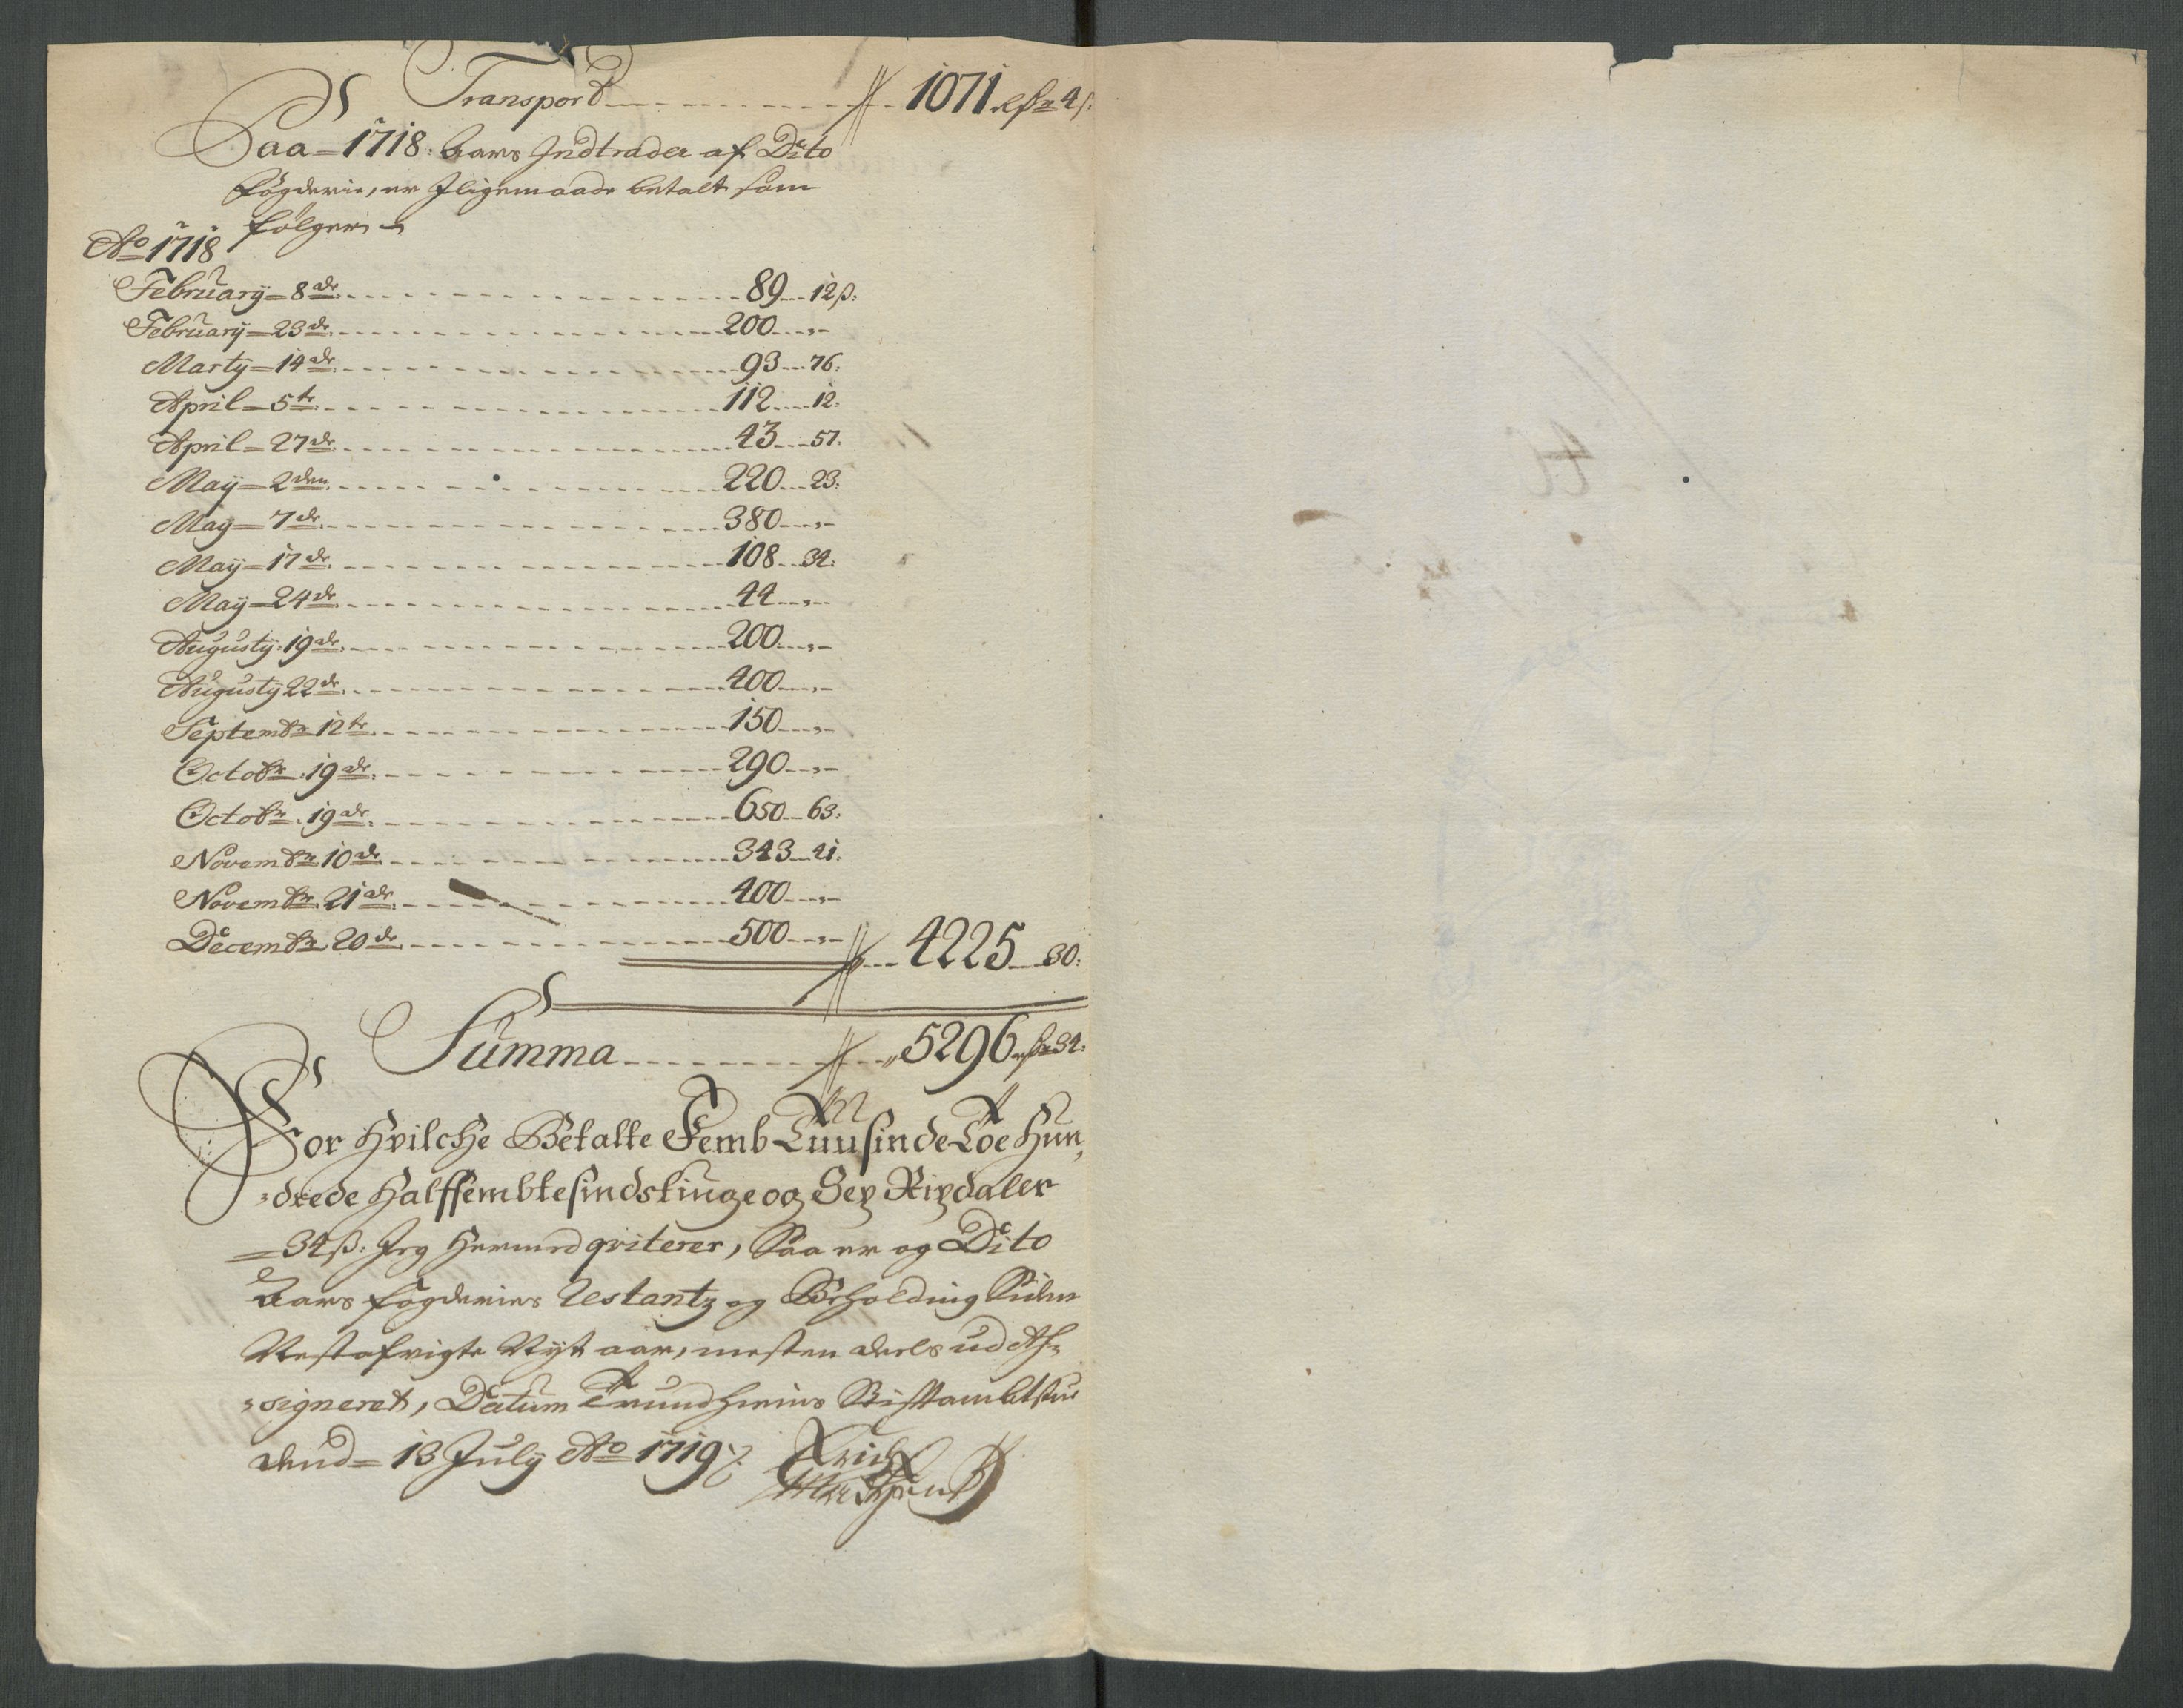 Transport 1071 rdr 4 ß:
Paa 1718: Aars Indtrader af Dito
fögderie, er Iligemaade betalt som
fölger
Ao 1718
February 8de 89 12 ß:
February 23de 200 "
Marty 14de 93 76:
April 5te 112 12:
April 27de 43 57:
Maÿ 2den 220 23:
May 7de 380 "
Maÿ 17de 108 34:
Maÿ 24de 44 "
Augusty: 19de 200 "
Augusty 22de 400 "
Septembr 12te 150 "
Octobr: 19de 290 "
Octobr. 19de 650 63:
Novembr 10de 343 41:
Novembr. 21de 400 "
Decembr 20de 500 " 4225 30:
Summa 5296 rdr 34:
For Hvilche Betalte Femb Tuusinde Toe Hun,
drede Halffembtesindstiuge og Sex Rixdaler
34 ß: Jeg Hermed qviterer, Saa er og Dito
Aars fögderies Restantz og Beholding Siden
Nestafvigte Nyt aar, mesten deels ud As,
signeret, Datum Trundhiems Stiftambtstue
dend 13 July Ao 1719